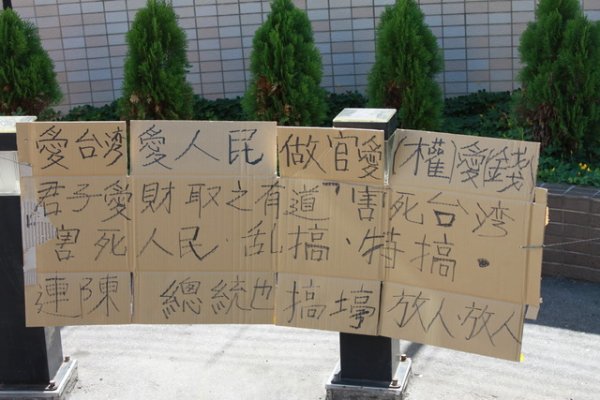 愛台湾愛人民做官愛(權)愛(錢)
君子愛財取之有道‧害死台湾
害死人民‧乱搞‧特搞‧
連陳總統也搞壕放人‧放人